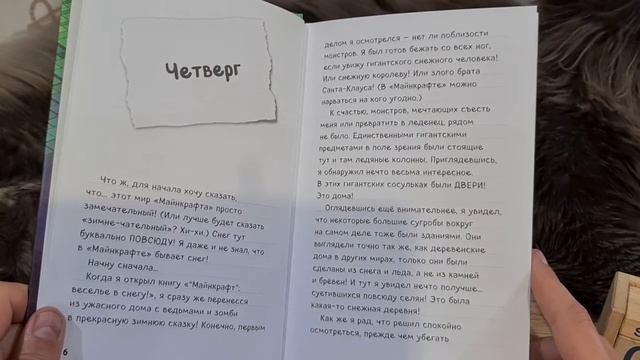 Четверг
Что ж, для начала хочу сказать,
что... этот мир «Майнкрафта» просто
замечательный! (Или лучше будет сказать
«зимне-чательный»? Хи-хи.) Снег тут
буквально ПОВСЮДУ! Я даже и не знал, что
в «Майнкрафте» бывает снег!
Начну сначала...
Когда я открыл книгу «"Майнкрафт":
веселье в снегу!», я сразу же перенёсся
из ужасного дома с ведьмами и зомби
в прекрасную зимнюю сказку! Конечно, первым
6
делом я осмотрелся — нет ли поблизости
монстров. Я был готов бежать со всех ног,
если увижу гигантского снежного человека!
Или снежную королеву! Или злого брата
Санта-Клауса! (В «Майнкрафте» можно
нарваться на кого угодно.)
К счастью, монстров, мечтающих съесть
меня или превратить в леденец, рядом
не было. Единственными гигантскими
предметами в поле зрения были стоящие
тут и там ледяные колонны. Приглядевшись,
я обнаружил нечто весьма интересное.
В этих гигантских сосульках были ДВЕРИ!
Это дома!
Оглядевшись ещё внимательнее, я увидел,
что некоторые большие сугробы вокруг
на самом деле тоже были зданиями. Они
выглядели точно так же, как деревенские
дома в других мирах, только они были
сделаны из снега и льда, а не из камней
и брёвен! И тут я увидел нечто получше...
суетившихся повсюду селян! Это была
какая-то снежная деревня!
Как же я рад, что решил спокойно
осмотреться, прежде чем убегать